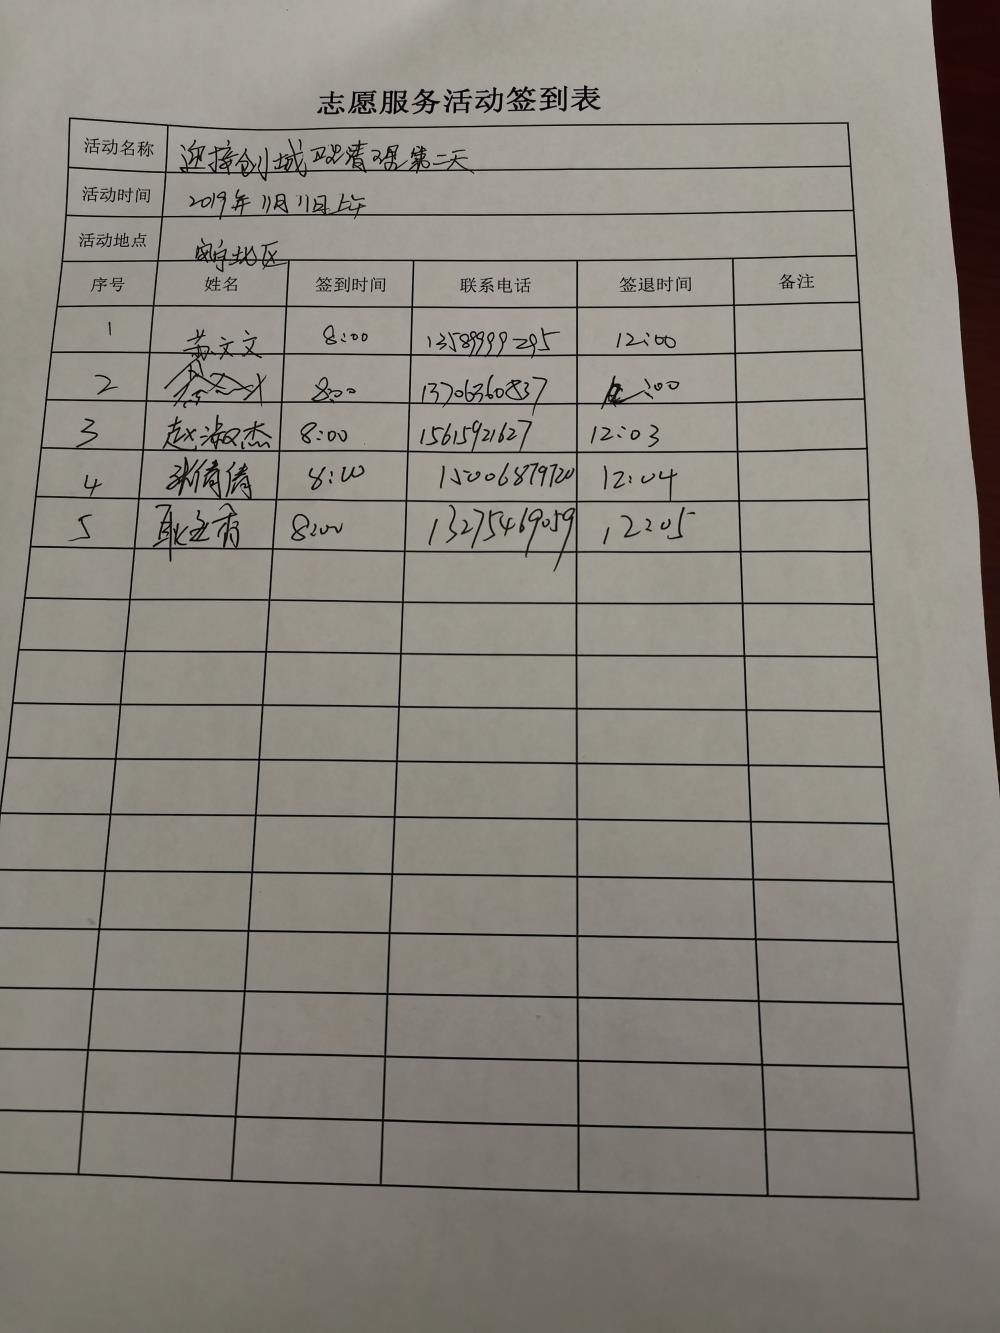 志愿服务活动签到表
活动名称 迎接创城 卫生清理第二天
活动时间 2019年11月11日上午
活动地点
序号 姓名 签到时间 联系电话 签退时间 备注
1 苏文文 8:00 13589999295 12:00
2 8:00 13706360837 :00
3 赵淑杰 8:00 15615921627 12:03
4 张倩倩 8:00 15006879720 12:04
5 8:00 13275469059 12:05